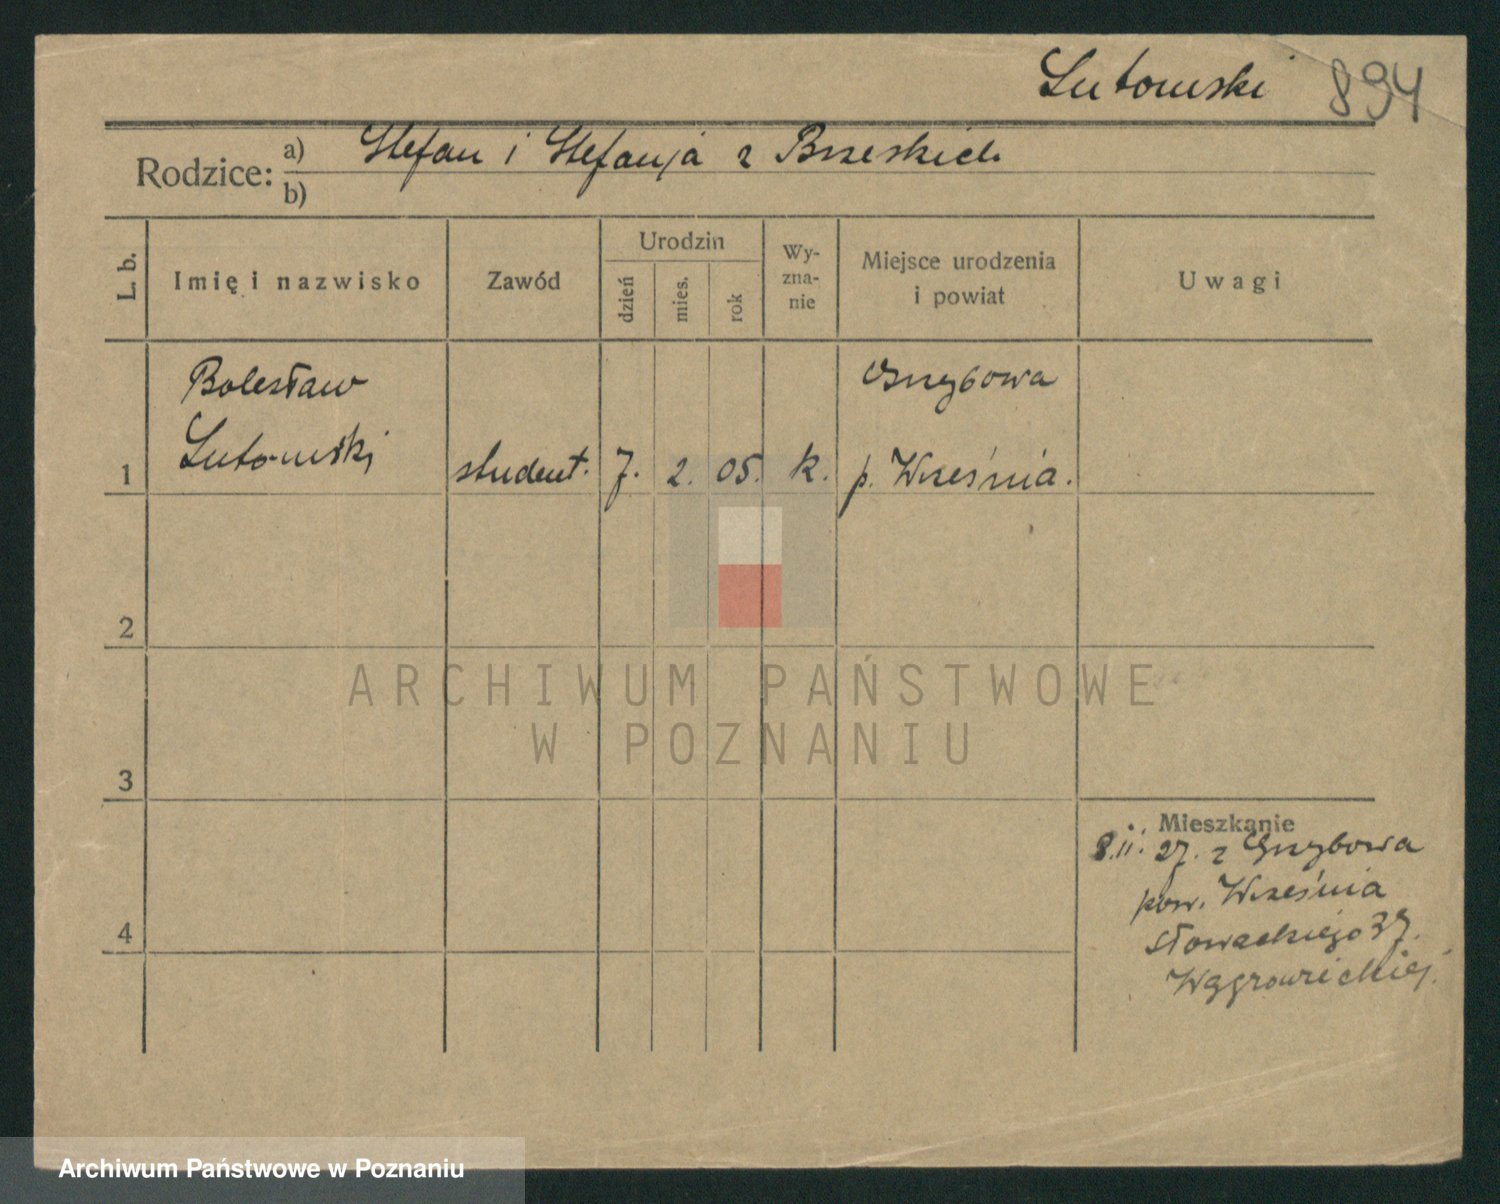 Lutomski 894
Rodzice: a) Stefan i Stefanja z Brzeskich
b)
L. b. Imię i nazwisko Zawód Urodzin dzień mies. rok Wyznanie Miejsce urodzenia i powiat Uwagi
Bolesław Grzybowa
1 Lutomski student. 7. 2. 05. k. p. Września.
2
ARCHIWUM PAŃSTWOWE
W POZNANIU
3
Mieszkanie
8.11. 27. z Grzybowa
pow. Września
4 Słowackiego 37.
Wągrowieckiej.
Archiwum Państwowe w Poznaniu